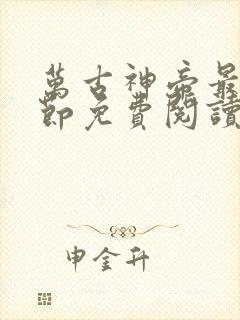 萬古神帝最
節免費閱讀
申金升